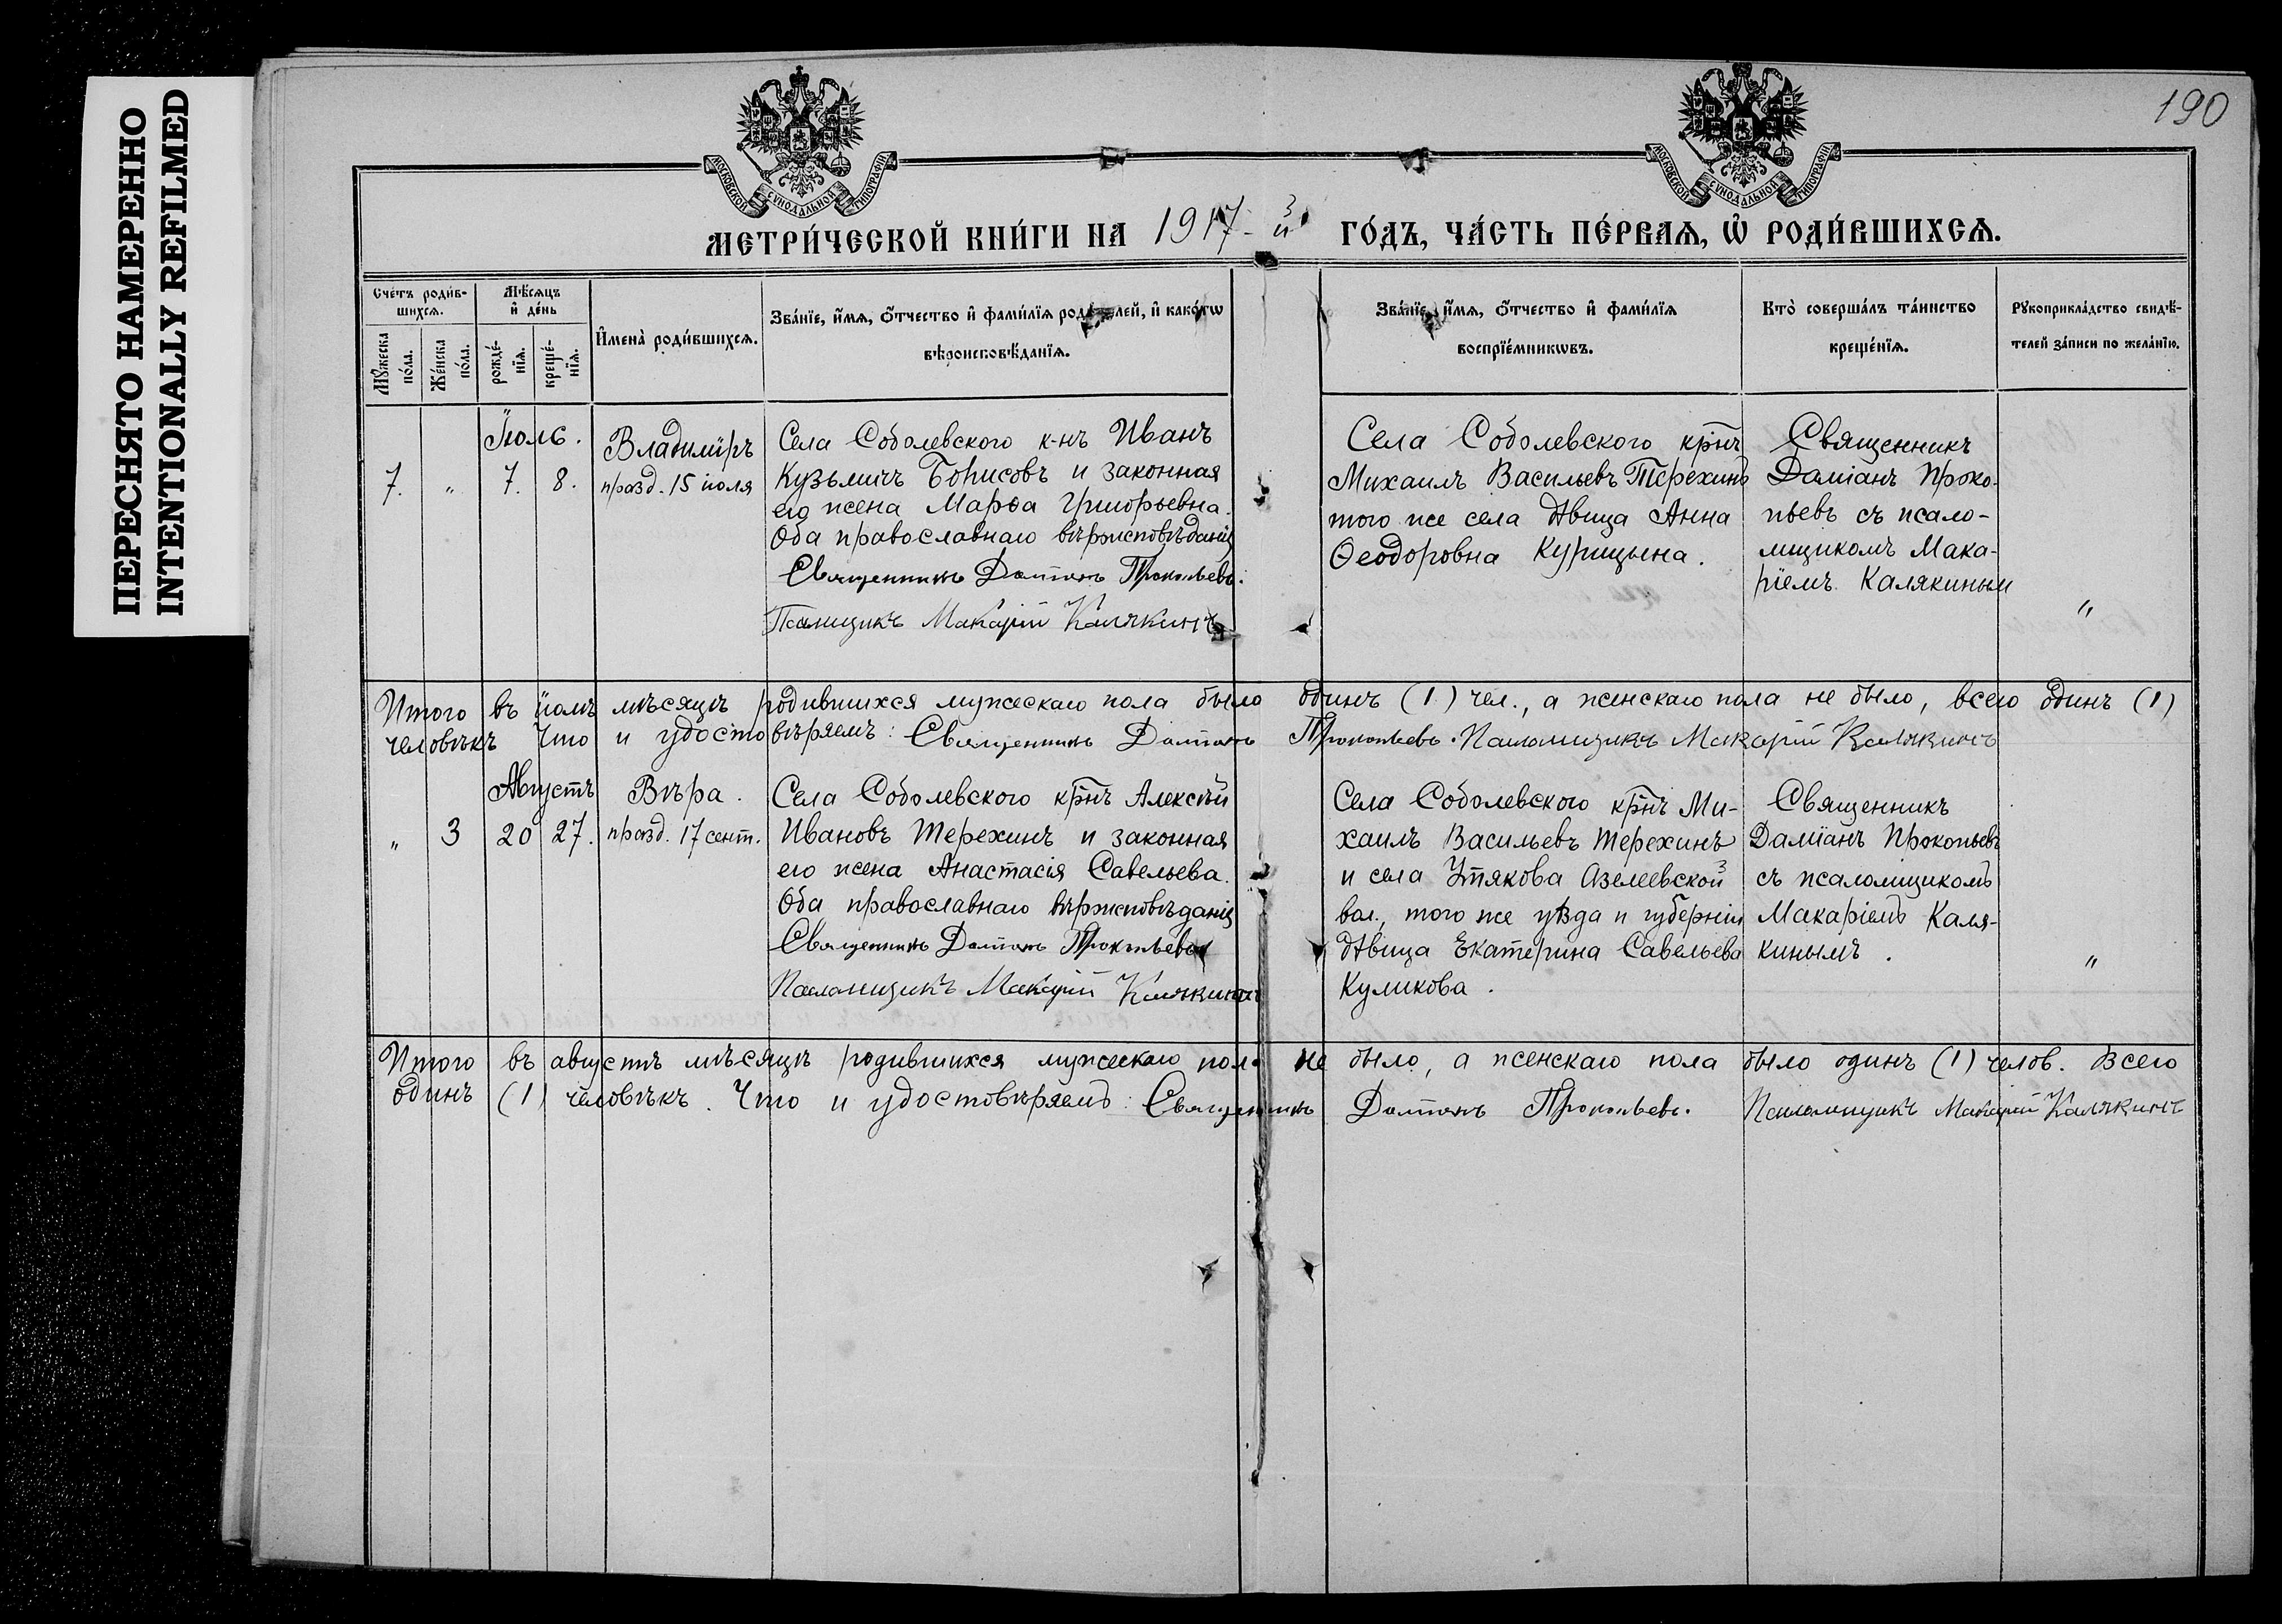 ПЕРЕСНЯТО НАМЕРЕННО
INTENTIONALLY REFILMED
190
МОСКОВСКОЙ СѴНОДАЛЬНОЙ ТИПОГРАФІИ
МОСКОВСКОЙ СѴНОДАЛЬНОЙ ТИПОГРАФІИ
МЕТРИ́ЧЕСКОЙ КНИ́ГИ НА 1917-й ГО́ДЪ, ЧА́СТЬ ПЕ́РВАѦ, Ѡ҆ РОДИ́ВШИХСѦ.
Сче́тъ роди́в-
шихсѧ.
Мꙋ́жеска
по́ла.
Же́нска
по́ла.
Мѣ́сѧцъ
и҆ де́нь
рожде́-
нїѧ.
креще́-
нїѧ.
И҆мена̀ роди́вшихсѧ.
Зва́нїе, и҆́мѧ, ѻ҆́тчество и҆ фами́лїѧ роди́телей, и҆ како́гѡ
вѣроисповѣ́данїѧ.
Зва́нїе, и҆́мѧ, ѻ҆́тчество и҆ фами́лїѧ
воспрїе́мникѡвъ.
Кто̀ соверша́лъ та́инство
креще́нїѧ.
Рꙋкоприкла́дство свидѣ́-
телей за́писи по жела́нїю.
Іюль.
7. " 7. 8.
Владиміръ
празд. 15 іюля
Села Соболевского к-нъ Иванъ
Кузьмичъ Борисовъ и законная
его жена Марѳа Григорьевна.
Оба православнаго вѣроисповѣданія
Священникъ Даміанъ Прокопьевъ.
Псаломщикъ Макарій Калякинъ
Села Соболевского крнъ
Михаилъ Васильевъ Терехинъ
того же села дѣвица Анна
Ѳеодоровна Курицына.
Священникъ
Даміанъ Проко-
пьевъ съ псало-
мщикомъ Мака-
ріемъ Калякиным
"
Итого въ іюлѣ мѣсяцѣ родившихся мужескаго пола было одинъ (1) чел., а женскаго пола не было, всего одинъ (1)
человѣкъ Что и удостовѣряемъ: Священникъ Даміанъ Прокопьевъ. Псаломщикъ Макарій Калякинъ
Августъ
" 3 20 27.
Вѣра.
празд. 17 сент.
Села Соболевского крнъ Алексѣй
Ивановъ Терехинъ и законная
его жена Анастасія Савельева.
Оба православнаго вѣроисповѣданія
Священникъ Даміанъ Прокопьевъ
Псаломщикъ Макарій Калякинъ
Села Соболевского крнъ Ми-
хаилъ Васильевъ Терехинъ
и села Утякова Азелеевской
вол., того же уѣзда и губерніи
дѣвица Екатерина Савельева
Куликова.
Священникъ
Даміанъ Прокопьевъ
съ псаломщикомъ
Макаріемъ Каля-
кинымъ.
"
Итого въ августѣ мѣсяцѣ родившихся мужескаго пола не было, а женскаго пола было одинъ (1) челов. Всего
одинъ (1) человѣкъ. Что и удостовѣряемъ: Священникъ Даміанъ Прокопьевъ. Псаломщикъ Макарій Калякинъ